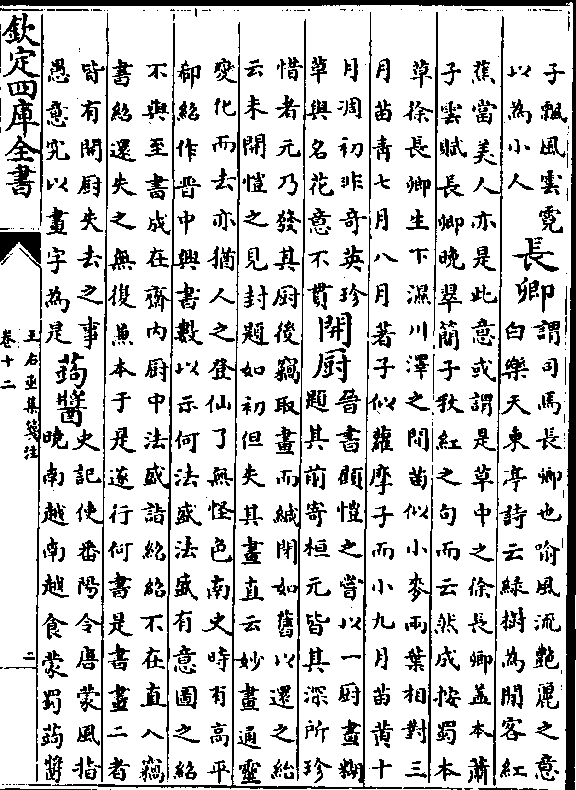 子飄風雲霓
以為小人
長卿
謂司馬長卿也喻風流艷麗之意
白樂天東亭詩云綠樹為閒客紅
蕉當美人亦是此意或謂是草中之徐長卿蓋本蕭
子雲賦長卿晚翠簡子秋紅之句而云然成按蜀本
草徐長卿生下濕川澤之間苗似小麥兩葉相對三
月苗青七月八月著子似蘿摩子而小九月苗黃十
月凋初非奇英珍
草與名花意不貫
開厨
晉書顧愷之嘗以一厨畫糊
題其前寄桓元皆其深所珍
惜者元乃發其厨後竊取畫而緘閉如舊以還之紿
云未開愷之見封題如初但失其畫直云妙畫通靈
變化而去亦猶人之登仙了無怪色南史時有高平
郗紹作晉中興書數以示何法盛法盛有意圖之紹
不與至書成在齋內厨中法盛詣紹紹不在直入竊
書紹還失之無復兼本于是遂行何書是書畫二者
皆有開厨失去之事
愚意究以畫字為是
蒟醬
史記使番陽令唐蒙風指
曉南越南越食蒙蜀蒟醬
欽定四庫全書
王右丞集箋注
卷十二
二